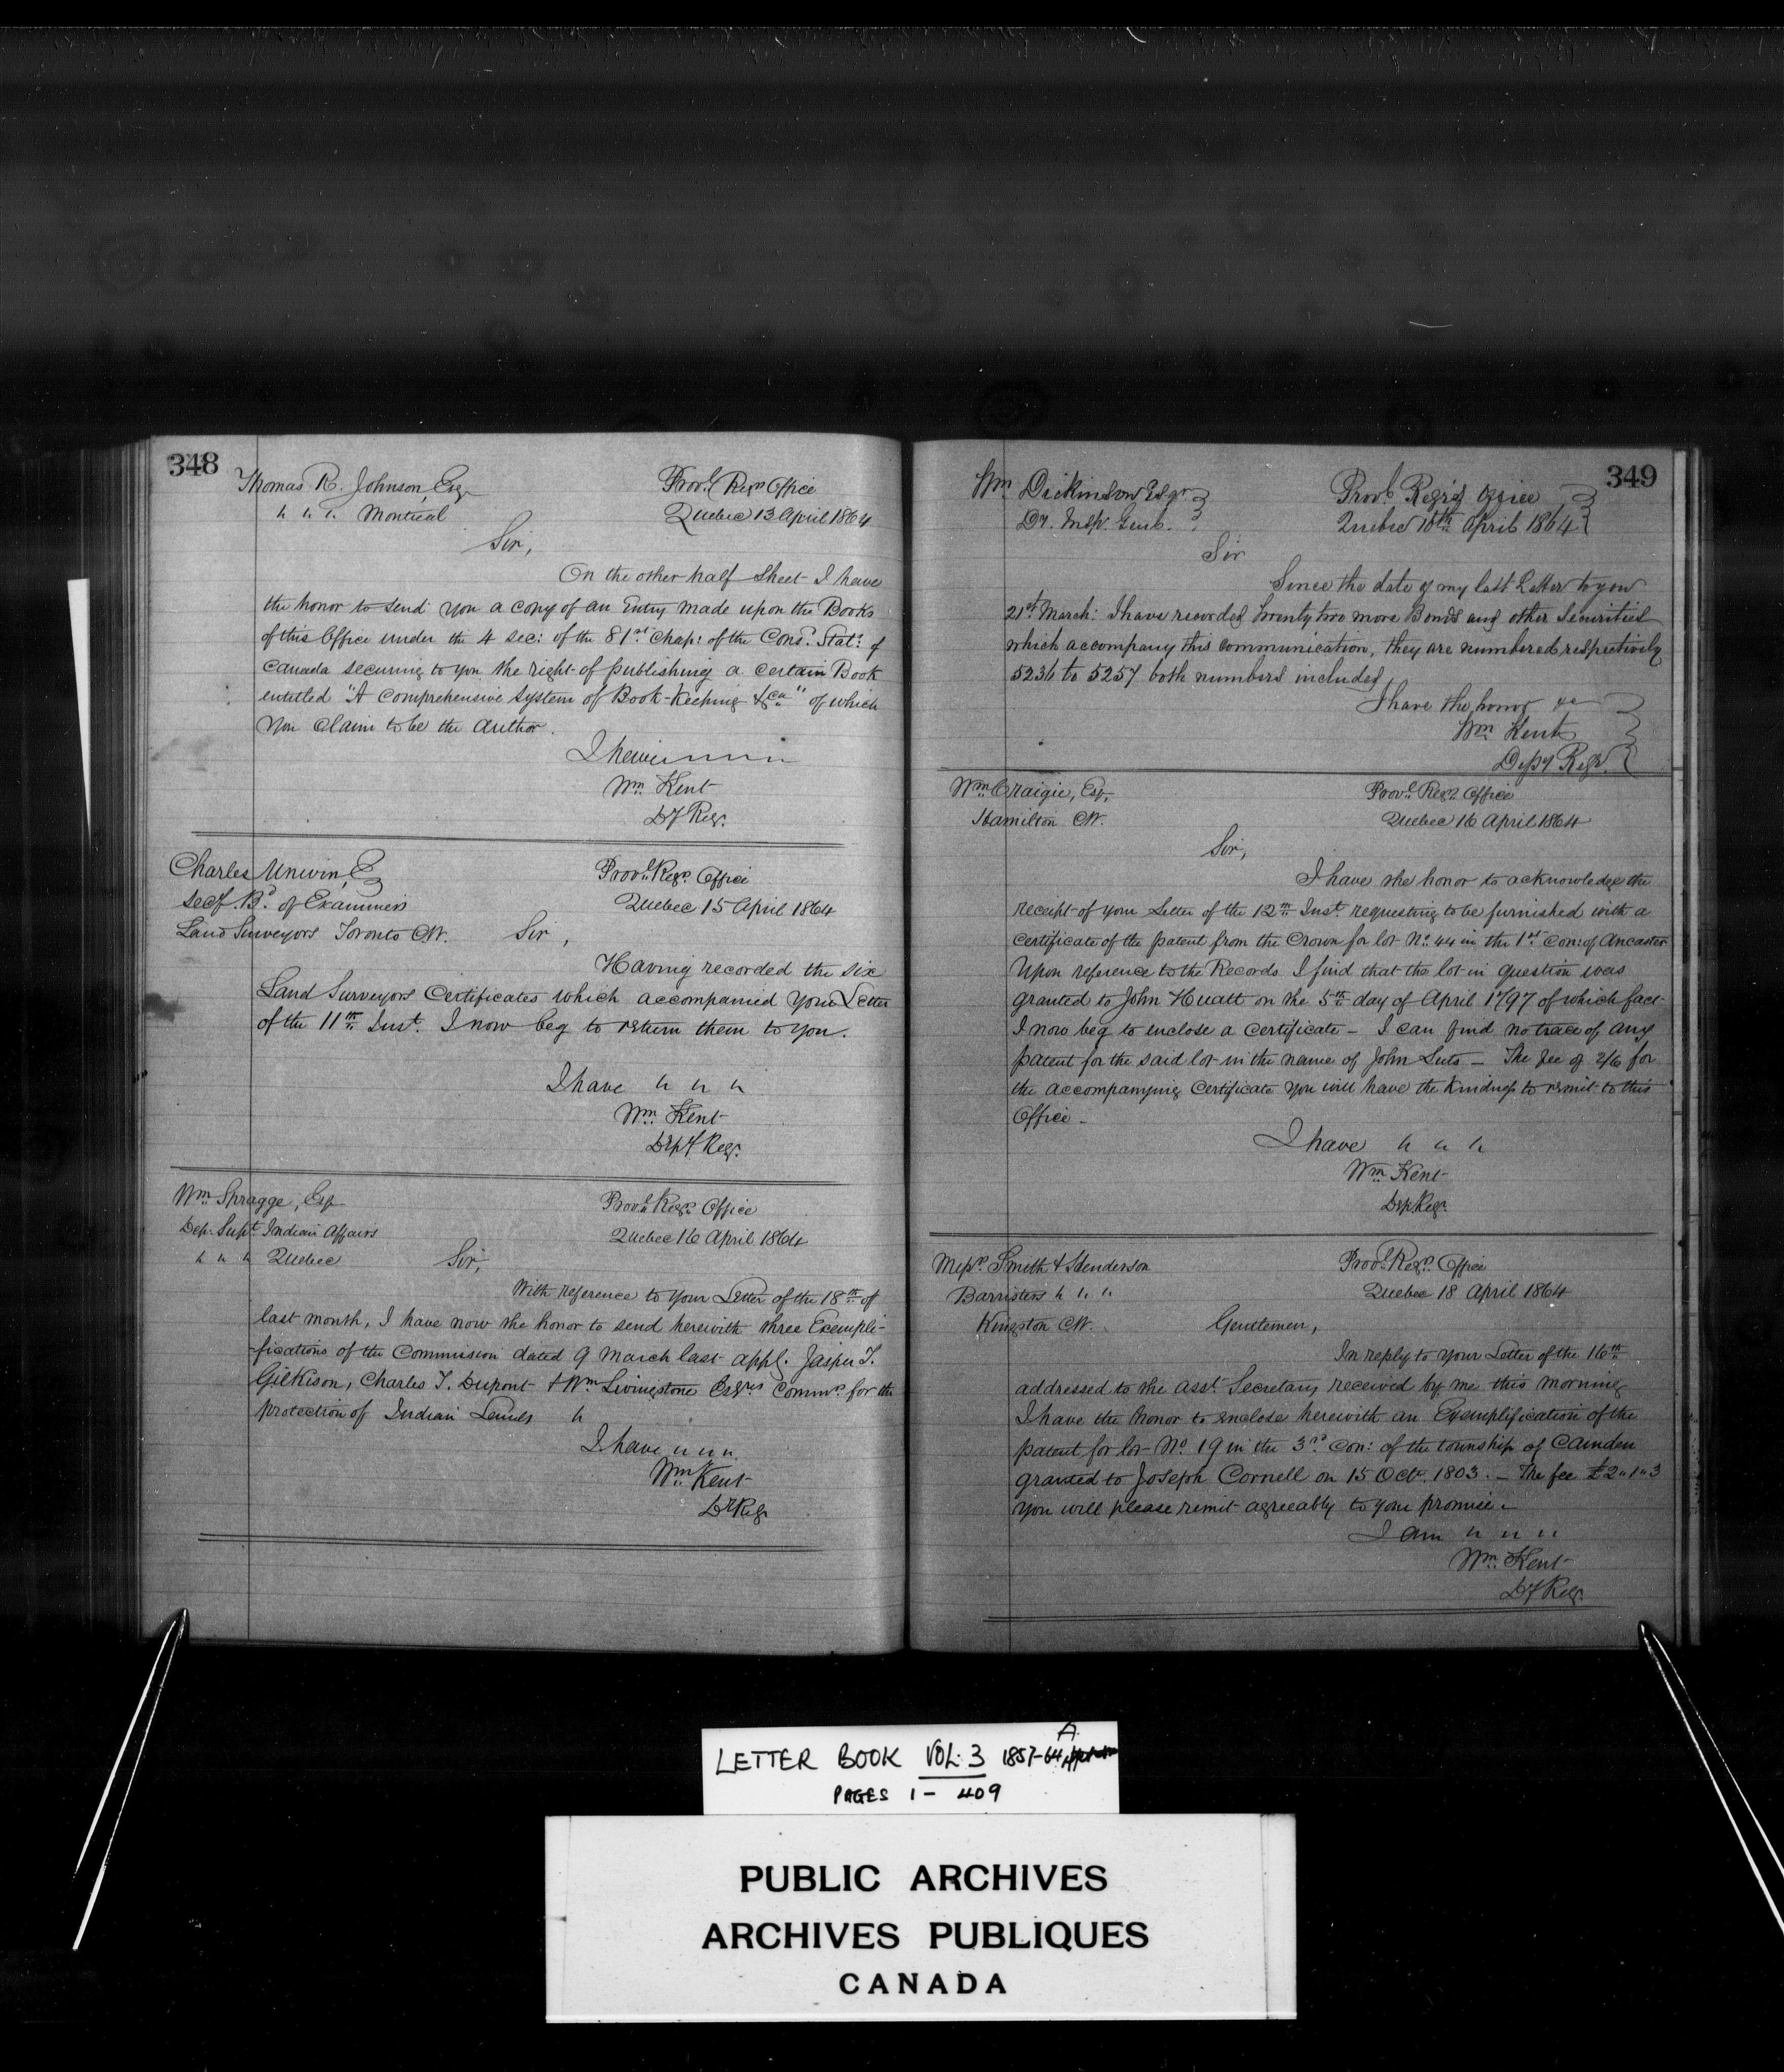 348
Thomas R. Johnson, Esqr
" " " Montreal
Provl Regrs Office
Quebec 13 April 1864
Sir,
On the other half sheet I have
the honor to send you a copy of an Entry made upon the Books
of this Office under the 4 sec: of the 81st Chap: of the Cons. Stat: of
Canada securing to you the right of publishing a certain Book
entitled "A comprehensive system of Book-Keeping &ca" of which
you claim to be the author.
I have
Wm Kent
Dy Regr.
Charles Unwin, E
Secy. Bd. of Examiners
Land Surveyors Toronto CW.
Provl Regrs Office
Quebec 15 April 1864
Sir,
Having recorded the six
Land Surveyors Certificates which accompanied your Letter
of the 11th Inst. I now beg to return them to you.
I have " " "
Wm Kent
Depy Regr.
Wm Spragge, Esq
Dep. Supt Indian Affairs
" " " Quebec
Provl Regrs Office
Quebec 16 April 1864
Sir,
With reference to your Letter of the 18th of
last month, I have now the honor to send herewith three Exempli-
-fications of the Commission dated 9 March last appg. Jasper T.
Gilkison, Charles T. Dupont & Wm Livingstone Esqres Commrs for the
protection of Indian Lands "
I have " " "
Wm Kent
Dy Regr
349
Wm Dickinson Esqr
Dy. Insp. Genl.
Provl Regrs Office
Quebec 16th April 1864
Sir
Since the date of my last Letter to you
21st March: I have recorded twenty two more Bonds and other Securities
which accompany this communication, they are numbered respectively
5236 to 5257 both numbers included
I have the honor &c
Wm Kent
Depy Regr.
Wm Craigie, Esq,
Hamilton CW.
Provl Regrs Office
Quebec 16 April 1864
Sir,
I have the honor to acknowledge the
receipt of your Letter of the 12th Inst. requesting to be furnished with a
certificate of the patent from the Crown for lot No. 44 in the 1st Con: of Ancaster
Upon reference to the Records I find that the lot in question was
granted to John Huatt on the 5th day of April 1797 of which fact
I now beg to enclose a certificate - I can find no trace of any
patent for the said lot in the name of John Luts - The fee of 2/6 for
the accompanying certificate you will have the kindness to remit to this
Office -
I have " " "
Wm Kent
Dep Regr
Messrs. Smith & Henderson
Barristers " " "
Kingston CW.
Provl Regrs Office
Quebec 18 April 1864
Gentlemen,
In reply to your Letter of the 16th
addressed to the asst. Secretary received by me this morning
I have the honor to enclose herewith an Exemplification of the
patent for lot No. 19 in the 3rd Con: of the township of Camden
granted to Joseph Cornell on 15 Octr. 1803. - The fee £2 " 1 " 3
you will please remit agreeably to your promise -
I am " " "
Wm Kent
Dy Regr.
LETTER BOOK VOL. 3 1857-64 A
PAGES 1 - 409
PUBLIC ARCHIVES
ARCHIVES PUBLIQUES
CANADA